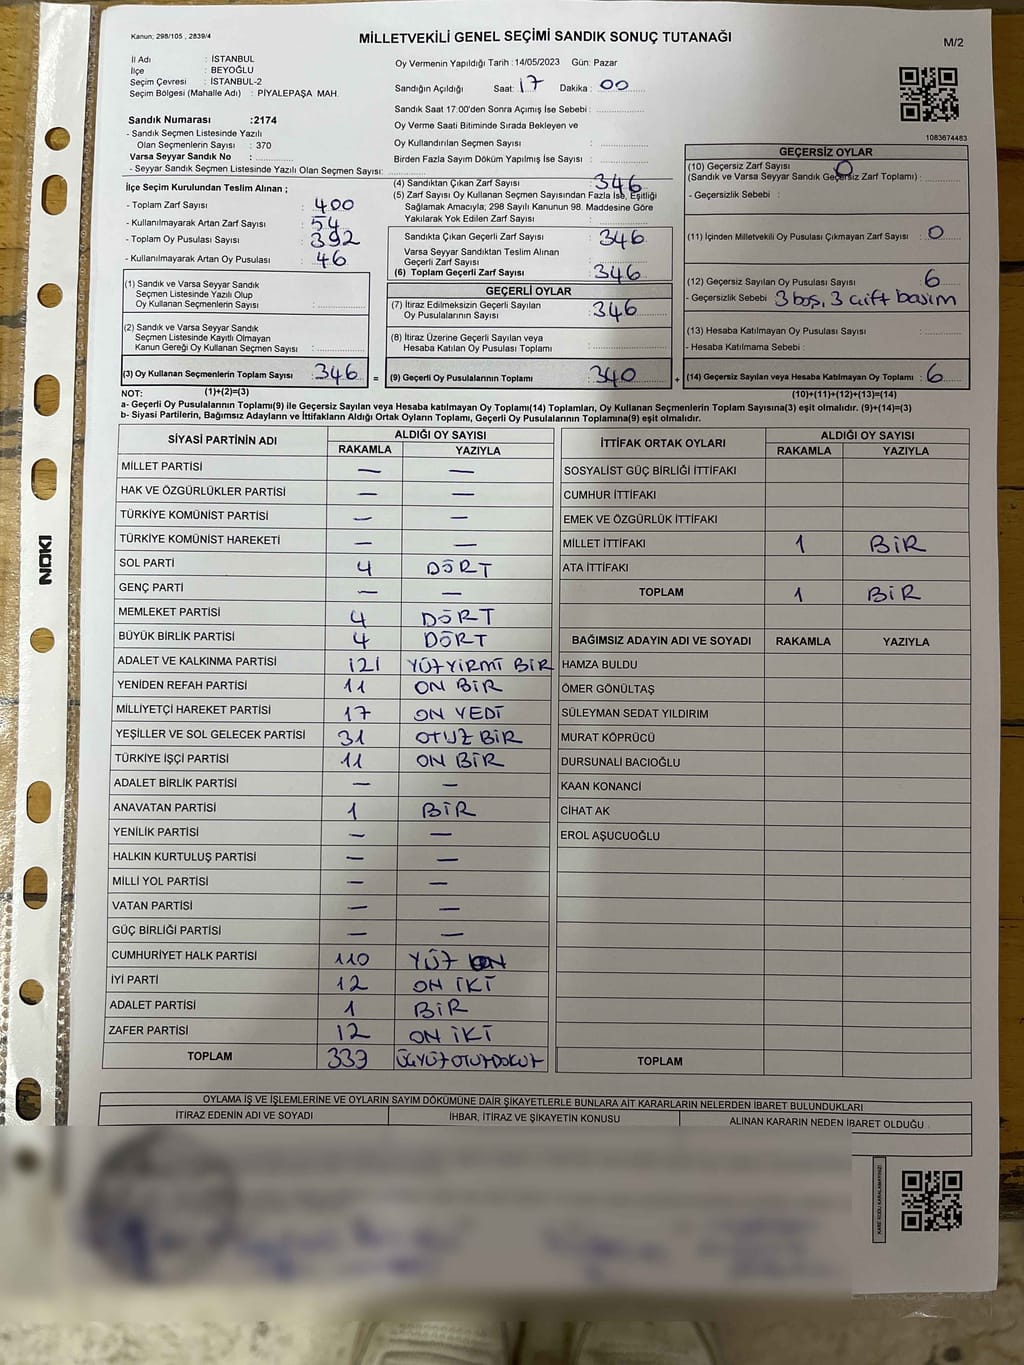 Kanun; 298/105 , 2839/4
MİLLETVEKİLİ GENEL SEÇİMİ SANDIK SONUÇ TUTANAĞI
M/2
İl Adı : İSTANBUL
İlçe : BEYOĞLU
Seçim Çevresi : İSTANBUL-2
Seçim Bölgesi (Mahalle Adı) : PİYALEPAŞA MAH.
Oy Vermenin Yapıldığı Tarih : 14/05/2023 Gün: Pazar
Sandığın Açıldığı Saat: 17 Dakika : 00
Sandık Saat 17:00'den Sonra Açımış İse Sebebi :
Oy Verme Saati Bitiminde Sırada Bekleyen ve
Oy Kullandırılan Seçmen Sayısı :
Birden Fazla Sayım Döküm Yapılmış İse Sayısı :
Sandık Numarası :2174
- Sandık Seçmen Listesinde Yazılı
Olan Seçmenlerin Sayısı : 370
Varsa Seyyar Sandık No :
- Seyyar Sandık Seçmen Listesinde Yazılı Olan Seçmen Sayısı:
1083674483
İlçe Seçim Kurulundan Teslim Alınan ;
- Toplam Zarf Sayısı : 400
- Kullanılmayarak Artan Zarf Sayısı : 54
- Toplam Oy Pusulası Sayısı : 392
- Kullanılmayarak Artan Oy Pusulası : 46
(1) Sandık ve Varsa Seyyar Sandık
Seçmen Listesinde Yazılı Olup
Oy Kullanan Seçmenlerin Sayısı :
(2) Sandık ve Varsa Seyyar Sandık
Seçmen Listesinde Kayıtlı Olmayan
Kanun Gereği Oy Kullanan Seçmen Sayısı :
(3) Oy Kullanan Seçmenlerin Toplam Sayısı : 346 =
(4) Sandıktan Çıkan Zarf Sayısı : 346
(5) Zarf Sayısı Oy Kullanan Seçmen Sayısından Fazla İse, Eşitliği
Sağlamak Amacıyla; 298 Sayılı Kanunun 98. Maddesine Göre
Yakılarak Yok Edilen Zarf Sayısı :
Sandıkta Çıkan Geçerli Zarf Sayısı : 346
Varsa Seyyar Sandıktan Teslim Alınan
Geçerli Zarf Sayısı :
(6) Toplam Geçerli Zarf Sayısı : 346
GEÇERLİ OYLAR
(7) İtiraz Edilmeksizin Geçerli Sayılan
Oy Pusulalarının Sayısı : 346
(8) İtiraz Üzerine Geçerli Sayılan veya
Hesaba Katılan Oy Pusulası Toplamı :
(9) Geçerli Oy Pusulalarının Toplamı : 340 +
GEÇERSİZ OYLAR
(10) Geçersiz Zarf Sayısı 0
(Sandık ve Varsa Seyyar Sandık Geçersiz Zarf Toplamı) :
- Geçersizlik Sebebi :
(11) İçinden Milletvekili Oy Pusulası Çıkmayan Zarf Sayısı : 0
(12) Geçersiz Sayılan Oy Pusulası Sayısı : 6
- Geçersizlik Sebebi : 3 boş, 3 çift basım
(13) Hesaba Katılmayan Oy Pusulası Sayısı :
- Hesaba Katılmama Sebebi :
(14) Geçersiz Sayılan veya Hesaba Katılmayan Oy Toplamı : 6
NOT: (1)+(2)=(3) (10)+(11)+(12)+(13)=(14)
a- Geçerli Oy Pusulalarının Toplamı(9) ile Geçersiz Sayılan veya Hesaba katılmayan Oy Toplamı(14) Toplamları, Oy Kullanan Seçmenlerin Toplam Sayısına(3) eşit olmalıdır. (9)+(14)=(3)
b- Siyasi Partilerin, Bağımsız Adayların ve İttifakların Aldığı Ortak Oyların Toplamı, Geçerli Oy Pusulalarının Toplamına(9) eşit olmalıdır.
SİYASİ PARTİNİN ADI ALDIĞI OY SAYISI
RAKAMLA YAZIYLA
MİLLET PARTİSİ — —
HAK VE ÖZGÜRLÜKLER PARTİSİ — —
TÜRKİYE KOMÜNİST PARTİSİ — —
TÜRKİYE KOMÜNİST HAREKETİ — —
SOL PARTİ 4 DÖRT
GENÇ PARTİ — —
MEMLEKET PARTİSİ 4 DÖRT
BÜYÜK BİRLİK PARTİSİ 4 DÖRT
ADALET VE KALKINMA PARTİSİ 121 YÜZYİRMİ BİR
YENİDEN REFAH PARTİSİ 11 ON BİR
MİLLİYETÇİ HAREKET PARTİSİ 17 ON YEDİ
YEŞİLLER VE SOL GELECEK PARTİSİ 31 OTUZ BİR
TÜRKİYE İŞÇİ PARTİSİ 11 ON BİR
ADALET BİRLİK PARTİSİ — —
ANAVATAN PARTİSİ 1 BİR
YENİLİK PARTİSİ — —
HALKIN KURTULUŞ PARTİSİ — —
MİLLİ YOL PARTİSİ — —
VATAN PARTİSİ — —
GÜÇ BİRLİĞİ PARTİSİ — —
CUMHURİYET HALK PARTİSİ 110 YÜZ ON
İYİ PARTİ 12 ON İKİ
ADALET PARTİSİ 1 BİR
ZAFER PARTİSİ 12 ON İKİ
TOPLAM 339 ÜÇYÜZOTUZDOKUZ
İTTİFAK ORTAK OYLARI ALDIĞI OY SAYISI
RAKAMLA YAZIYLA
SOSYALİST GÜÇ BİRLİĞİ İTTİFAKI
CUMHUR İTTİFAKI
EMEK VE ÖZGÜRLÜK İTTİFAKI
MİLLET İTTİFAKI 1 BİR
ATA İTTİFAKI
TOPLAM 1 BİR
BAĞIMSIZ ADAYIN ADI VE SOYADI RAKAMLA YAZIYLA
HAMZA BULDU
ÖMER GÖNÜLTAŞ
SÜLEYMAN SEDAT YILDIRIM
MURAT KÖPRÜCÜ
DURSUNALİ BACIOĞLU
KAAN KONANCİ
CİHAT AK
EROL AŞUCUOĞLU
TOPLAM
OYLAMA İŞ VE İŞLEMLERİNE VE OYLARIN SAYIM DÖKÜMÜNE DAİR ŞİKAYETLERLE BUNLARA AİT KARARLARIN NELERDEN İBARET BULUNDUKLARI
İTİRAZ EDENİN ADI VE SOYADI İHBAR, İTİRAZ VE ŞİKAYETİN KONUSU ALINAN KARARIN NEDEN İBARET OLDUĞU
KARE KODU KARALAMAYINIZ!
NOKI